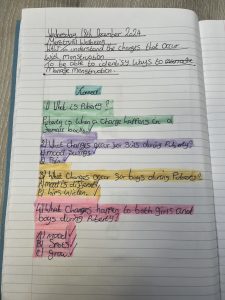 Wednesday 18th December 2024
Menstrual Wellbeing
WALT: understand the changes that occur
with menstruation
To be able to identify ways to
manage menstruation.
Connect
1) What is Puberty?
Puberty is when a change happens in a
female body
2) What changes occur for girls during Puberty?
1) mood swings
2) Pain
3) What changes occur for boys during Puberty?
1) mood is different
2) hips widen
4) What changes happen to both girls and
boys during Puberty?
1) mood
2) spots
3) grow